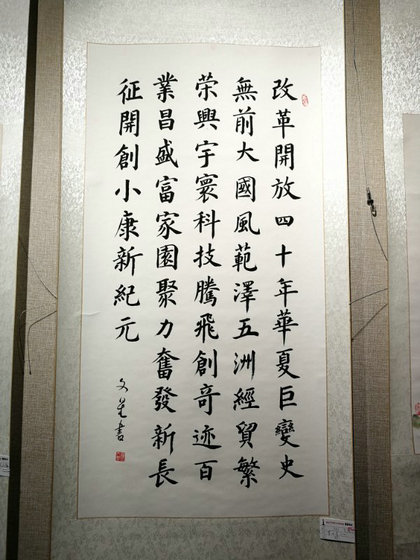 改革開放四十年華夏巨變史
無前大國風範澤五洲經貿繁
榮興宇寰科技騰飛創奇迹百
業昌盛富家園聚力奮發新長
征開創小康新紀元
文生書